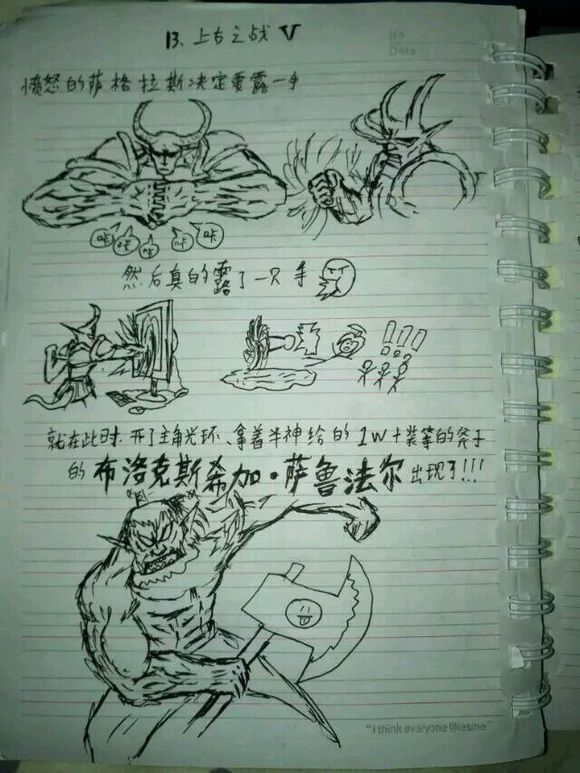 13、上古之战 V
No
Date
愤怒的萨格拉斯决定要露一手
咔 咔 咔 咔 咔
然后真的露了一只手
!!!
就在此时,开了主角光环、拿着半神给的1W+装等的斧子
的布洛克斯希加·萨鲁法尔出现了!!!
"I think everyone likes me"